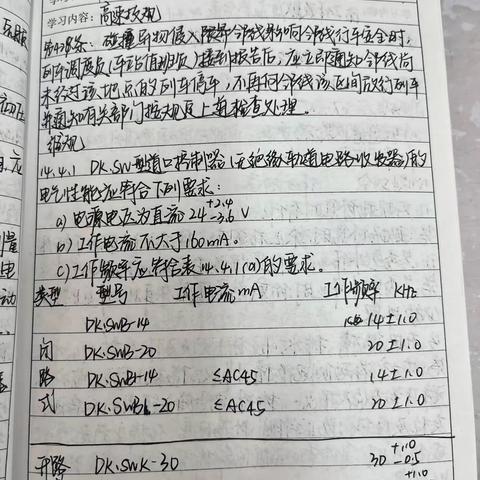 学习内容：高速技规
第428条：碰撞异物侵入限界邻线影响邻线行车安全时，
列车调度员（车站值班员）接到报告后，应立即通知邻线尚
未经过该地点的列车停车，不再向邻线该区间放行列车
并通知有关部门按规定上道检查处理。
维规
14.4.1 DK·SW型道口控制器（无绝缘轨道电路收发器）的
电气性能应符合下列要求：
a) 电源电压为直流24 +2.4 -3.6 V
b) 工作电流不大于160mA。
c) 工作频率应符合表14.4.1(a)的要求。
类型 型号 工作电流mA 工作频率 KHz
DK·SWB-14 14±1.0
闭 DK·SWB-20 20±1.0
路 DK·SWB1-14 ≤AC45 14±1.0
式 DK·SWB1-20 ≤AC45 20±1.0
开路 DK·SWK-30 30 +1.0 -0.5
+1.0